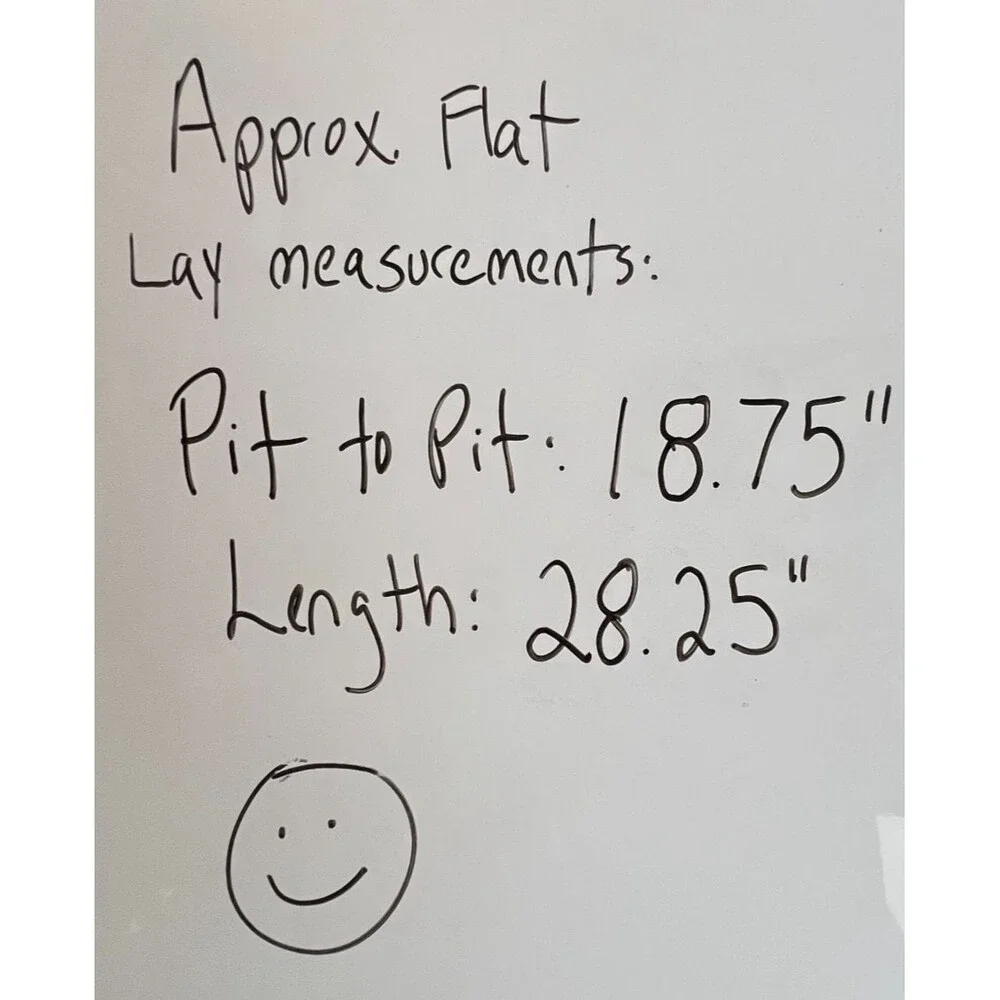 Approx. Flat
Lay measurements:
Pit to Pit: 18.75"
Length: 28.25"